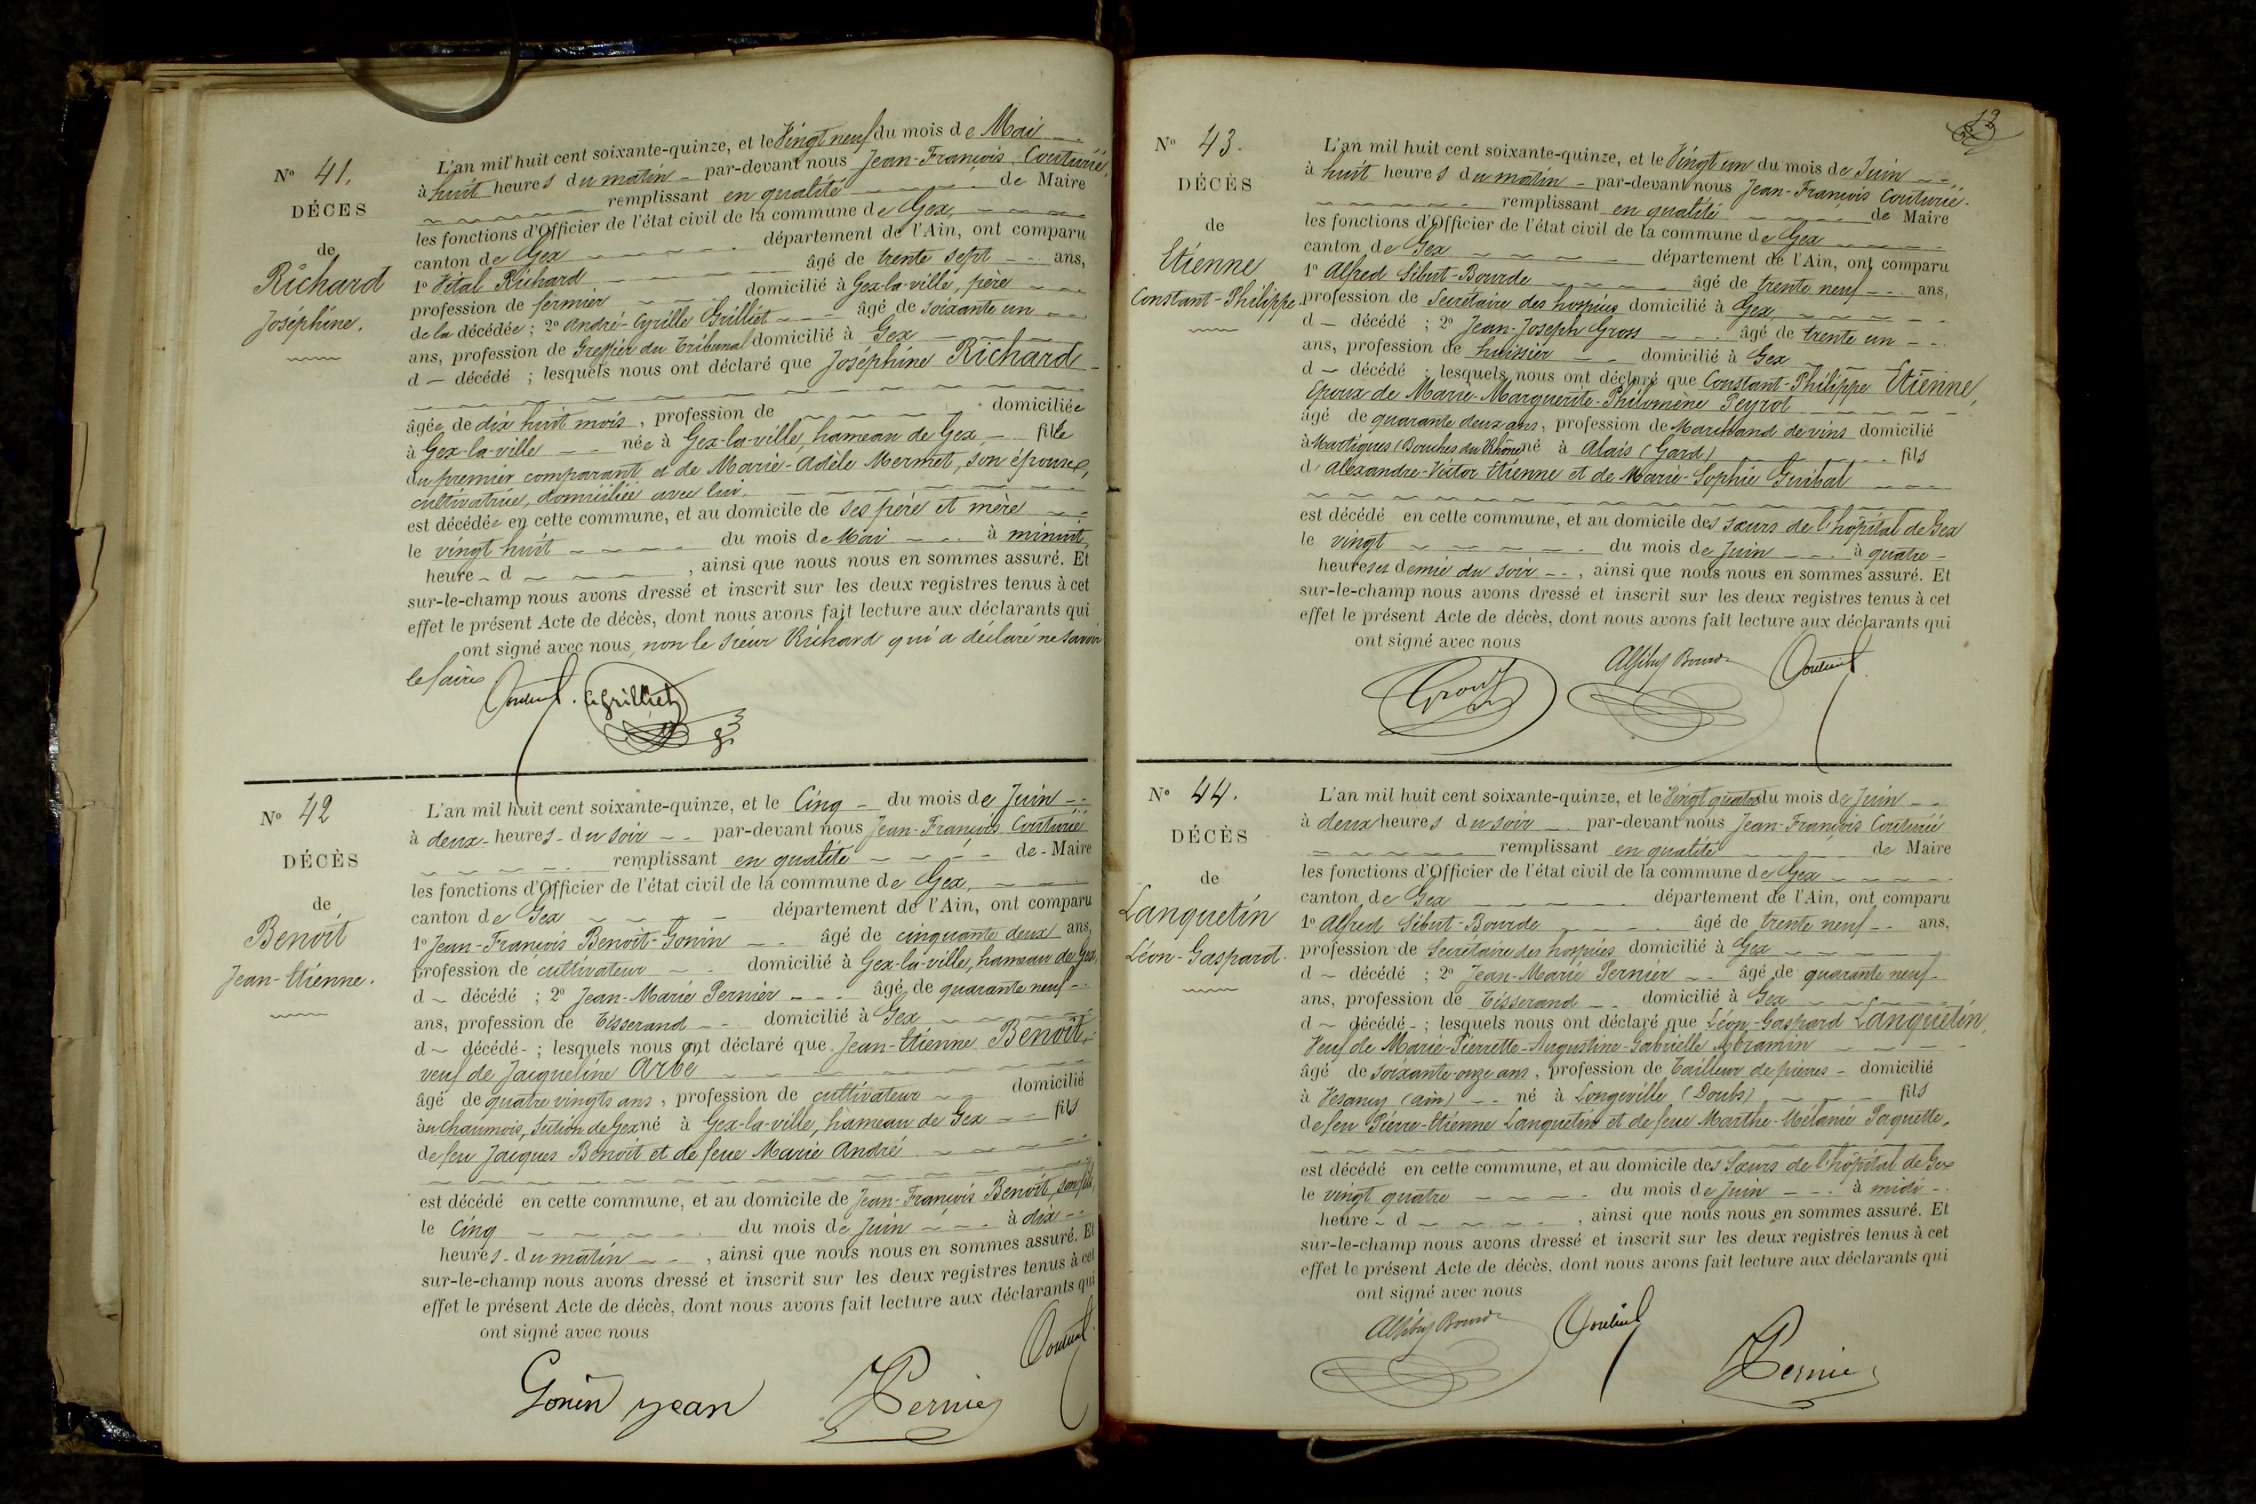 Nº 41.
DÉCES
de
Richard
Joséphine.
L'an mil huit cent soixante-quinze, et le Vingt neuf du mois de Mai
à huit heures du matin par-devant nous Jean-François Couturié,
remplissant en qualité de Maire
les fonctions d'Officier de l'état civil de la commune de Gex,
canton de Gex département de l'Ain, ont comparu
1º Vital Richard âgé de trente sept ans,
profession de fermier domicilié à Gex-la-ville, père
de la décédée ; 2º André-Cyrille Grilliet âgé de soixante un
ans, profession de Greffier du Tribunal domicilié à Gex
d décédé ; lesquels nous ont déclaré que Joséphine Richard
âgée de dix huit mois, profession de domiciliée
à Gex-la-ville née à Gex-la-ville, hameau de Gex, fille
du premier comparant et de Marie-Adèle Mermet, son épouse,
cultivatrice, domiciliée avec lui.
est décédée en cette commune, et au domicile de ses père et mère
le vingt huit du mois de Mai à minuit,
heure d , ainsi que nous nous en sommes assuré. Et
sur-le-champ nous avons dressé et inscrit sur les deux registres tenus à cet
effet le présent Acte de décès, dont nous avons fait lecture aux déclarants qui
ont signé avec nous, non le sieur Richard qui a déclaré ne savoir
le faire
Grilliet
Nº 42
DÉCÈS
de
Benoit
Jean-Etienne.
L'an mil huit cent soixante-quinze, et le Cinq du mois de Juin
à deux heures du soir par-devant nous Jean-François Couturié
remplissant en qualité de Maire
les fonctions d'Officier de l'état civil de la commune de Gex,
canton de Gex département de l'Ain, ont comparu
1º Jean-François Benoit-Gonin âgé de cinquante deux ans,
profession de cultivateur domicilié à Gex-la-ville, hameau de Gex,
d décédé ; 2º Jean-Marie Pernier âgé de quarante neuf
ans, profession de Tisserand domicilié à Gex
d décédé ; lesquels nous ont déclaré que Jean-Etienne Benoit,
veuf de Jacqueline Arbe
âgé de quatre vingts ans, profession de cultivateur domicilié
au Chaumois, section de Gex né à Gex-la-ville, hameau de Gex fils
de feu Jacques Benoit et de feue Marie André
est décédé en cette commune, et au domicile de Jean-François Benoit, son fils,
le cinq du mois de Juin à dix
heures du matin , ainsi que nous nous en sommes assuré. Et
sur-le-champ nous avons dressé et inscrit sur les deux registres tenus à cet
effet le présent Acte de décès, dont nous avons fait lecture aux déclarants qui
ont signé avec nous
Gonin jean Pernier
13
Nº 43.
DÉCÈS
de
Etienne
Constant-Philippe.
L'an mil huit cent soixante-quinze, et le Vingt un du mois de Juin
à huit heures du matin par-devant nous Jean-François Couturié.
remplissant en qualité de Maire
les fonctions d'Officier de l'état civil de la commune de Gex
canton de Gex département de l'Ain, ont comparu
1º Alfred Sibut-Bourde âgé de trente neuf ans,
profession de Secrétaire des hospices domicilié à Gex,
d décédé ; 2º Jean-Joseph Gross âgé de trente un
ans, profession de huissier domicilié à Gex
d décédé ; lesquels nous ont déclaré que Constant-Philippe Etienne,
Epoux de Marie-Marguerite-Philomène Peyrot
âgé de quarante deux ans, profession de Marchand de vins domicilié
à Martigues (Bouches du Rhône) né à Alais (Gard) fils
d'Alexandre-Victor Etienne et de Marie-Sophie Guibal
est décédé en cette commune, et au domicile des sœurs de l'hôpital de Gex
le vingt du mois de Juin à quatre
heures et demie du soir , ainsi que nous nous en sommes assuré. Et
sur-le-champ nous avons dressé et inscrit sur les deux registres tenus à cet
effet le présent Acte de décès, dont nous avons fait lecture aux déclarants qui
ont signé avec nous
Nº 44.
DÉCÈS
de
Lanquetin
Léon-Gaspard.
L'an mil huit cent soixante-quinze, et le Vingt quatre du mois de Juin
à deux heures du soir par-devant nous Jean-François Couturié
remplissant en qualité de Maire
les fonctions d'Officier de l'état civil de la commune de Gex
canton de Gex département de l'Ain, ont comparu
1º Alfred Sibut-Bourde âgé de trente neuf ans,
profession de Secrétaire des hospices domicilié à Gex
d décédé ; 2º Jean-Marie Pernier âgé de quarante neuf
ans, profession de Tisserand domicilié à Gex
d décédé ; lesquels nous ont déclaré que Léon-Gaspard Lanquetin,
Veuf de Marie-Pierrette-Augustine-Gabrielle Abramin
âgé de soixante-onze ans, profession de Tailleur de pierres domicilié
à Vesancy (ain) né à Longeville (Doubs) fils
de feu Pierre-Etienne Lanquetin et de feue Marthe-Mélanie Paquette.
est décédé en cette commune, et au domicile des Sœurs de l'hôpital de Gex
le vingt quatre du mois de Juin à midi
heure d , ainsi que nous nous en sommes assuré. Et
sur-le-champ nous avons dressé et inscrit sur les deux registres tenus à cet
effet le présent Acte de décès, dont nous avons fait lecture aux déclarants qui
ont signé avec nous
Pernier